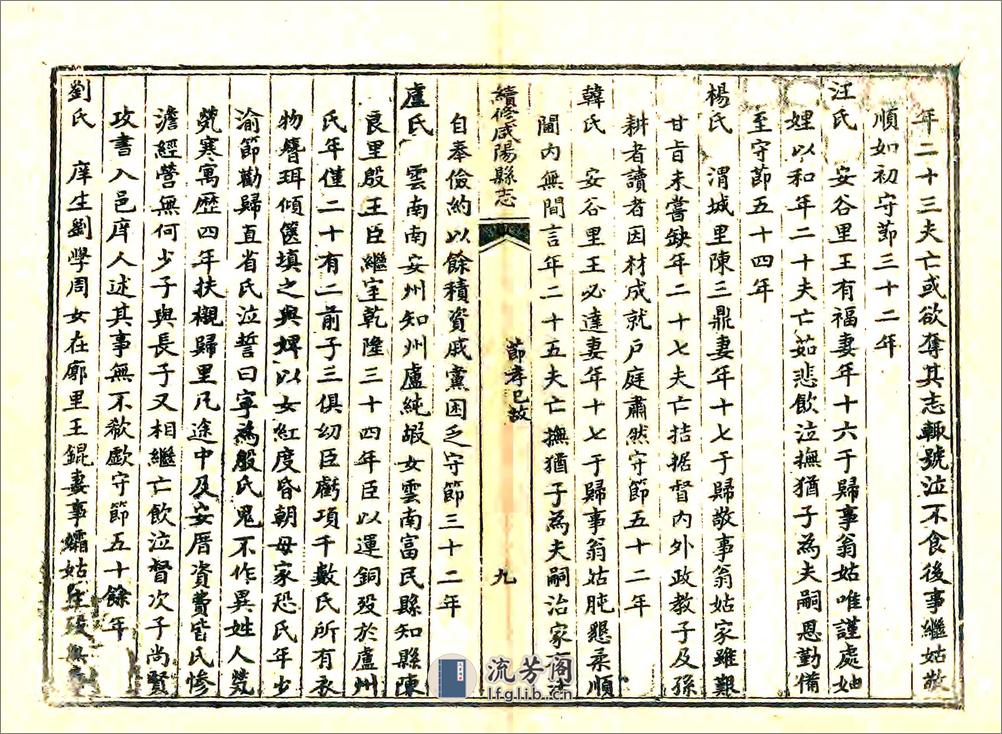 年二十三夫亡或欲奪其志輒號泣不食後事繼姑敬
順如初守節三十二年
汪氏 安谷里王有福妻年十六于歸事翁姑唯謹處妯
娌以和年二十夫亡茹悲飲泣撫猶子為夫嗣恩勤備
至守節五十四年
楊氏 渭城里陳三鼎妻年十七于歸敬事翁姑家雖艱
甘旨未嘗缺年二十七夫亡拮据督內外政教子及孫
耕者讀者因材成就戶庭肅然守節五十二年
韓氏 安谷里王必達妻年十七于歸事翁姑肫懇柔順
閫內無間言年二十五夫亡撫猶子為夫嗣治家
續修咸陽縣志
節孝已故
九
自奉儉約以餘積資戚黨困乏守節三十二年
盧氏 雲南南安州知州盧純嘏女雲南富民縣知縣陳
良里殷王臣繼室乾隆三十四年臣以運銅歿於盧州
氏年僅二十有二前子三俱幼臣虧項千數氏所有衣
物簪珥傾篋填之與婢以女紅度昏朝母家恐氏年少
渝節勸歸直省氏泣誓曰寧為殷氏鬼不作異姓人煢
煢寒寓歷四年扶櫬歸里凡途中及安厝資費皆氏慘
澹經營無何少子與長子又相繼亡飲泣督次子尚賢
攻書入邑庠人述其事無不欷歔守節五十餘年
劉氏 庠生劉學周女在廓里王錕妻事孀姑生歿無
流芳阁
lfglib.cn